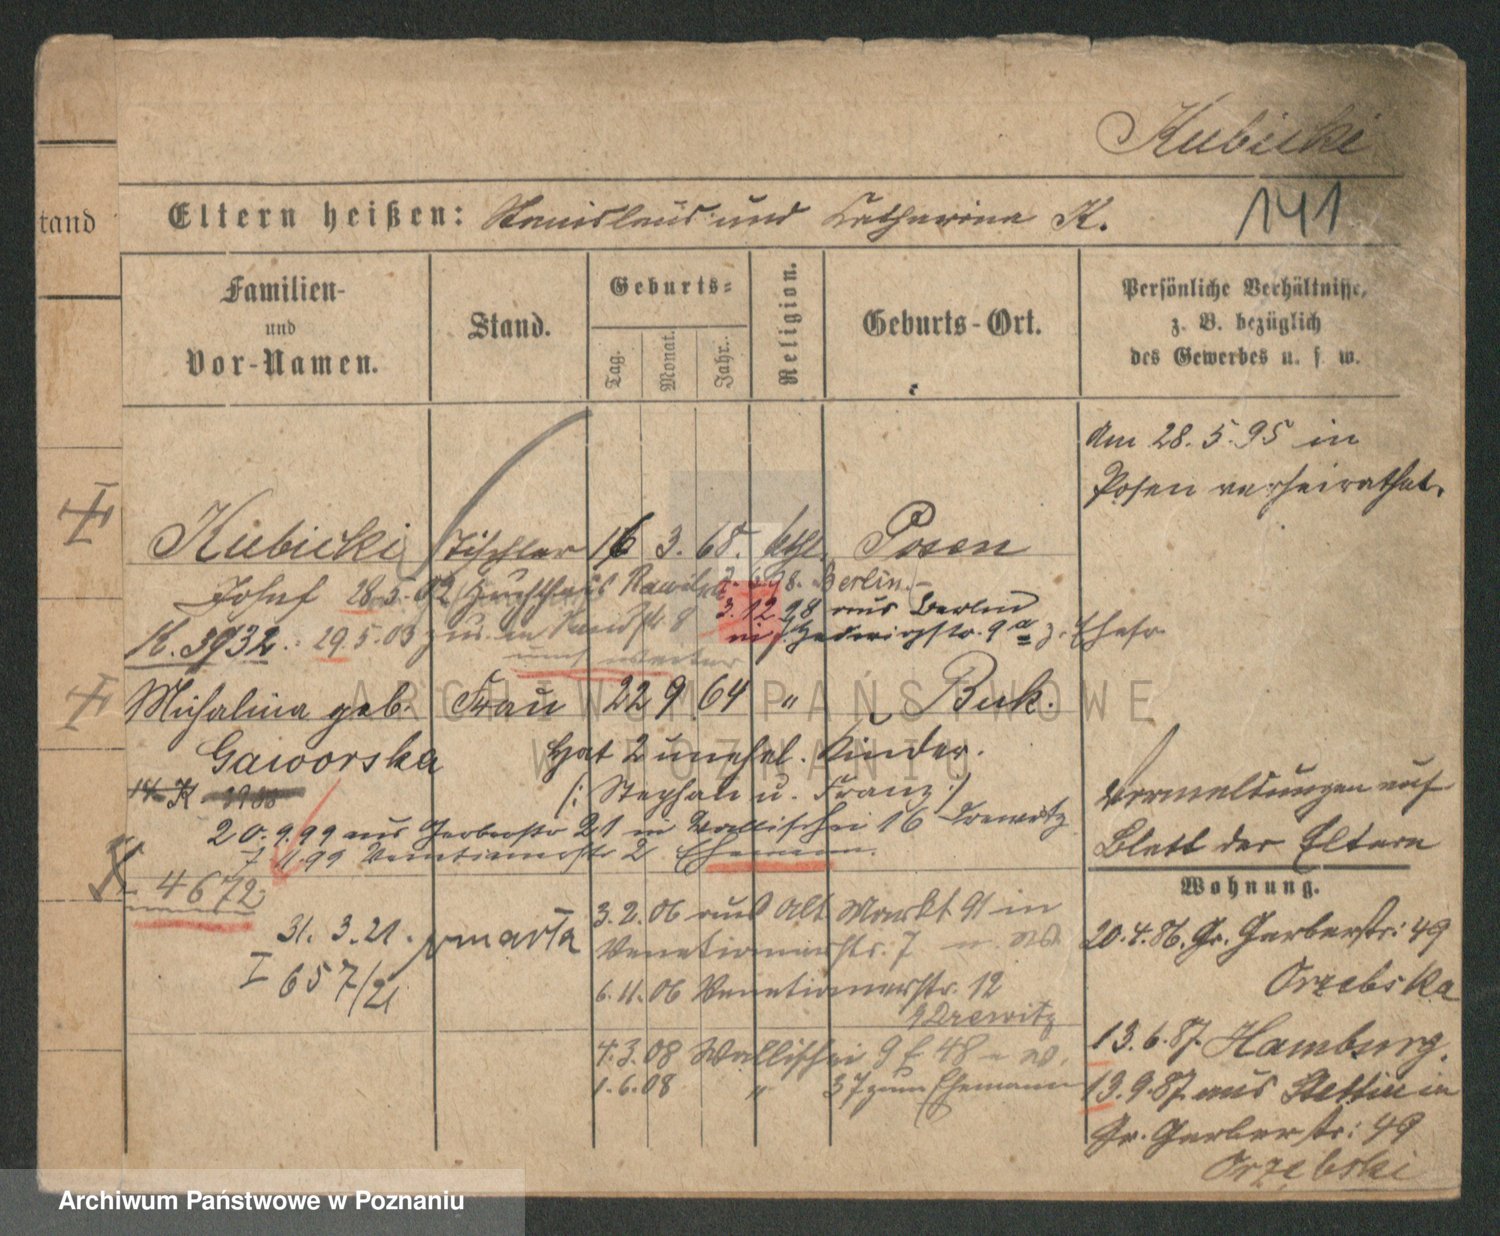 Kubicki
141
tand
Eltern heißen: Stanislaus und Catharina K.
Familien-
und
Vor-Namen.
Stand.
Geburts-
Tag.
Monat.
Jahr.
Religion.
Geburts-Ort.
Persönliche Verhältnisse,
z. B. bezüglich
des Gewerbes u. s. w.
Am 28.5.95 in
Posen verheirathet.
Kubicki Tischler 16 3. 68. kthl. Posen
Josef 28.5.02 Zuchthaus Rawitsch 98. Berlin.
3.12.98 aus Berlin
K. 3932. 29.5.03 9a z. Ehefr
und weiter
Michalina geb. Frau 22 9 64 " Buk.
Gaworska Hat 2 unehel. Kinder.
(: Stephan u. Franz :)
20.9.99 aus Gerberstr 21 in Wallischei 16 Drewitz
7.11.99 Venetianerstr 2 Ehemann.
4672
31.3.21. zmarła
I 657/21
3.2.06 aus Alt Markt 91 in
Venetianerstr. 7
6.11.06 Venetianerstr. 12
Drewitz
4.3.08 Wallischei 48
1.6.08 " 37 zum Ehemann
Vermeldungen auf
Blatt der Eltern
Wohnung.
20.4.86. Gr. Gerberstr: 49
Orzebska
13.6.87. Hamburg.
13.9.87. aus Stettin in
Gr. Gerberstr: 49
Orzebski
ARCHIWUM PAŃSTWOWE
W POZNANIU
Archiwum Państwowe w Poznaniu